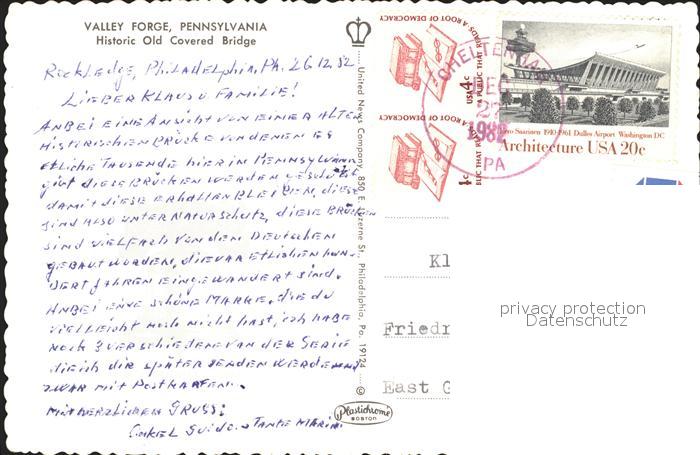 VALLEY FORGE, PENNSYLVANIA
Historic Old Covered Bridge
Rockledge, Philadelphia, Pa. 26.12.82
Lieber Klaus u Familie!
Anbei eine Ansicht von einer alten
Historischen Brücke von denen es
etliche Tausende hier in Pennsylvanien
gibt diese Brücken werden geschützt
damit diese erhalten bleiben, diese
sind also unter Naturschutz, diese Brücken
sind vielfach von den Deutschen
gebaut worden, die vor etlichen hun-
dert Jahren eingewandert sind.
Anbei eine schöne Marke, die du
vielleicht noch nicht hast, ich habe
noch 3 verschiedene von der Serie
die ich dir später senden werde und
zwar mit Postkarten.
Mit herzlichen Gruss:
Onkel Guido u Tante Maria
United News Company, 850 E. Luzerne St., Philadelphia, Pa. 19124
©
Plastichrome
BOSTON
A ROOT OF DEMOCRACY
USA 4c
A PUBLIC THAT READS
A ROOT OF DEMOCRACY
CHELTENHAM
DEC
27
1982
PA
Eero Saarinen 1910-1961 Dulles Airport Washington DC
Architecture USA 20c
Kl
Friedr
East G
privacy protection
Datenschutz